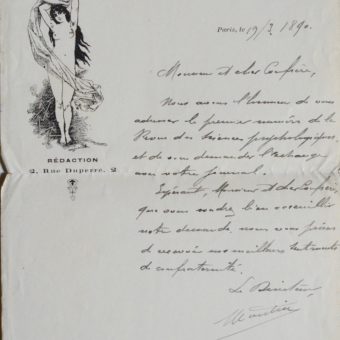 Paris, le 19/3 1890
Monsieur et cher Confrère,
Nous avons l'honneur de vous
adresser le premier numéro de la
Revue des Sciences psychologiques,
et de vous demander l'échange
avec votre journal.
RÉDACTION
2, Rue Duperré, 2
Espérant, Monsieur et cher Confrère,
que vous voudrez bien accueillir
notre demande, nous vous prions
de recevoir nos meilleurs sentiments
de confraternité.
Le Directeur